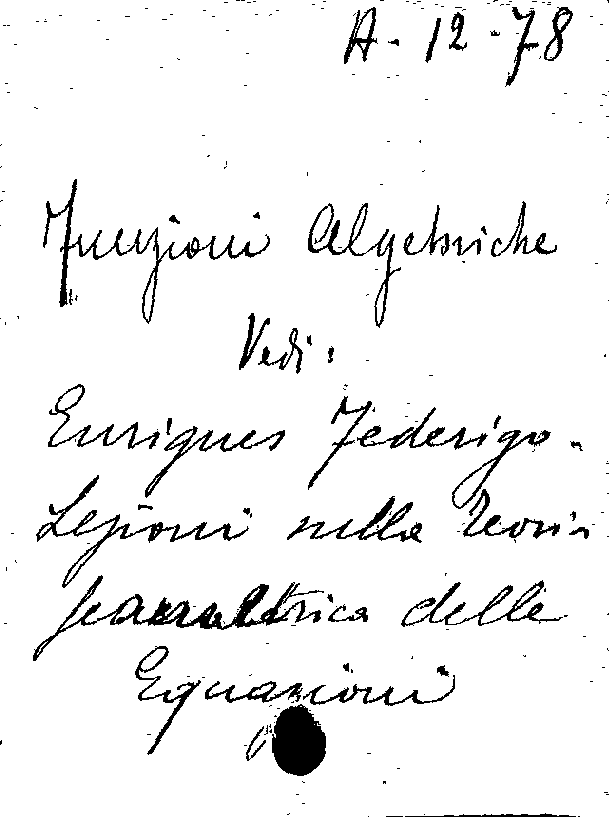 A-12-78
Funzioni Algebriche
Vedi:
Enriques Federigo -
Lezioni sulla teoria
geometrica delle
Equazioni